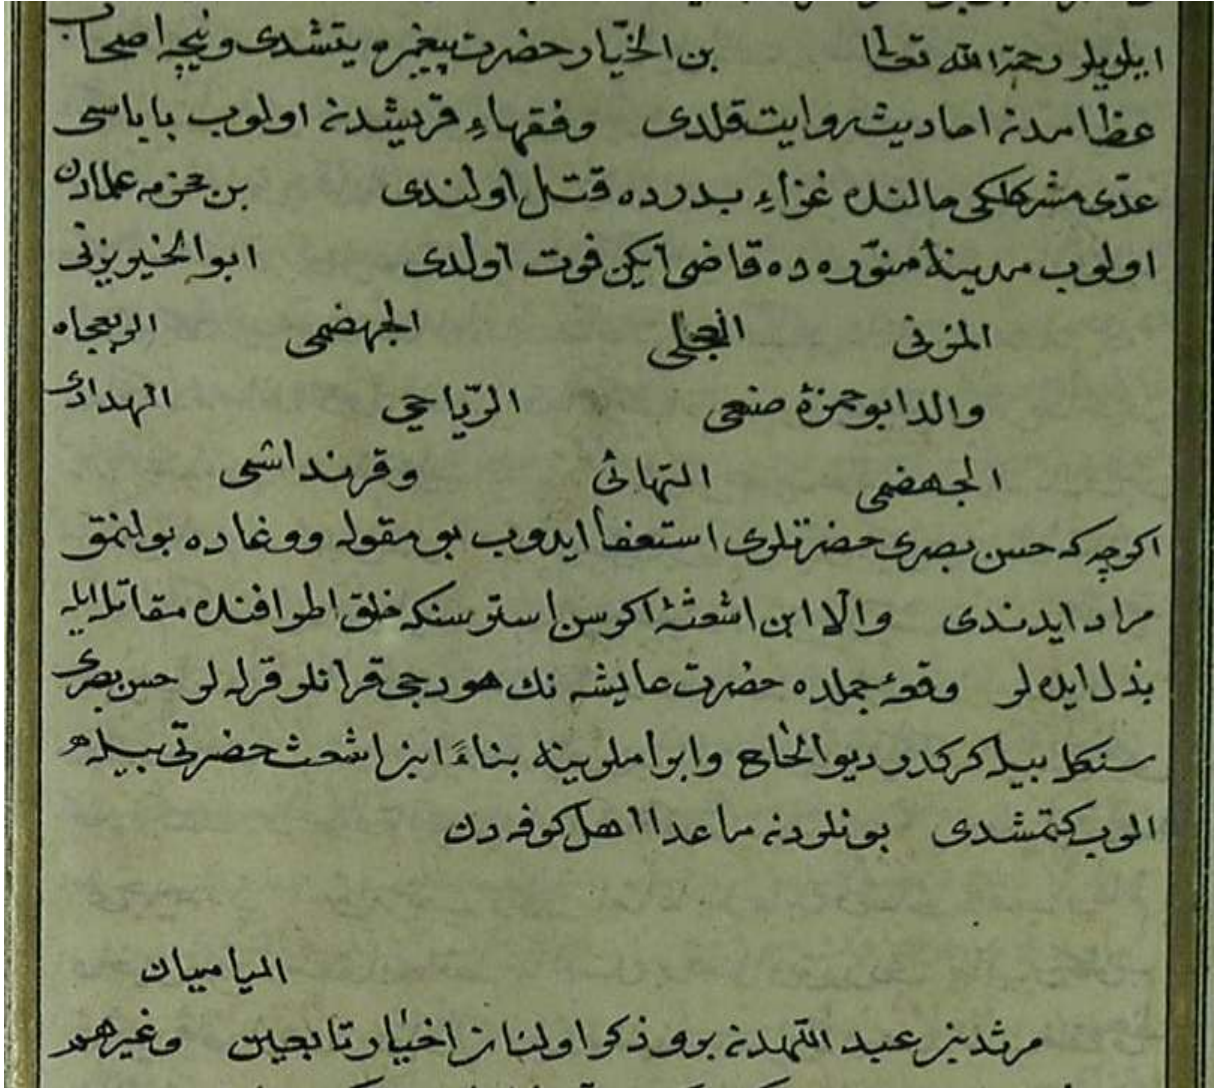 ایلویلر رحمة الله تعالى بن الخيار حضرت پیغمبره یتشدی ونیچه اصحاب
عظامدنه احادیث روایت قلدی وفقهاء قریشدنه اولوب باباسی
عدّی مشرکلکی حالنده غزاء بدرده قتل اولندی بن مخرمه علمادن
اولوب مدینهٔ منوّره ده قاضی ایکن فوت اولدی ابو الخیر یزنی
المزنی العجلی الجهضمی
والد ابو حمزهٔ ضبعی الریاحی الهدادی
الجهضمی وقرنداشی
اکرچه که حسن بصری حضرتلری استعفا ایدوب بو مقوله ووغاده بولنمق
مراد ایدندی والا ابن اشعثه اکر سن استرسنکه خلق اطرافنده مقاتله ایله
بذل ایده لر وقعهٔ جملده حضرت عایشه نك هودجی قرانلر قرله لر حسن بصری
سنکله بیله کرکدر دیو الحاح وابراملرینه بناءً ابن اشعث حضرتی بیله
الوب کتمشدی بونلردنه ماعدا اهل کوفه دن
مرثد بن عبد اللهدنه برو ذکر اولنان اخیار تابعین وغیرهم